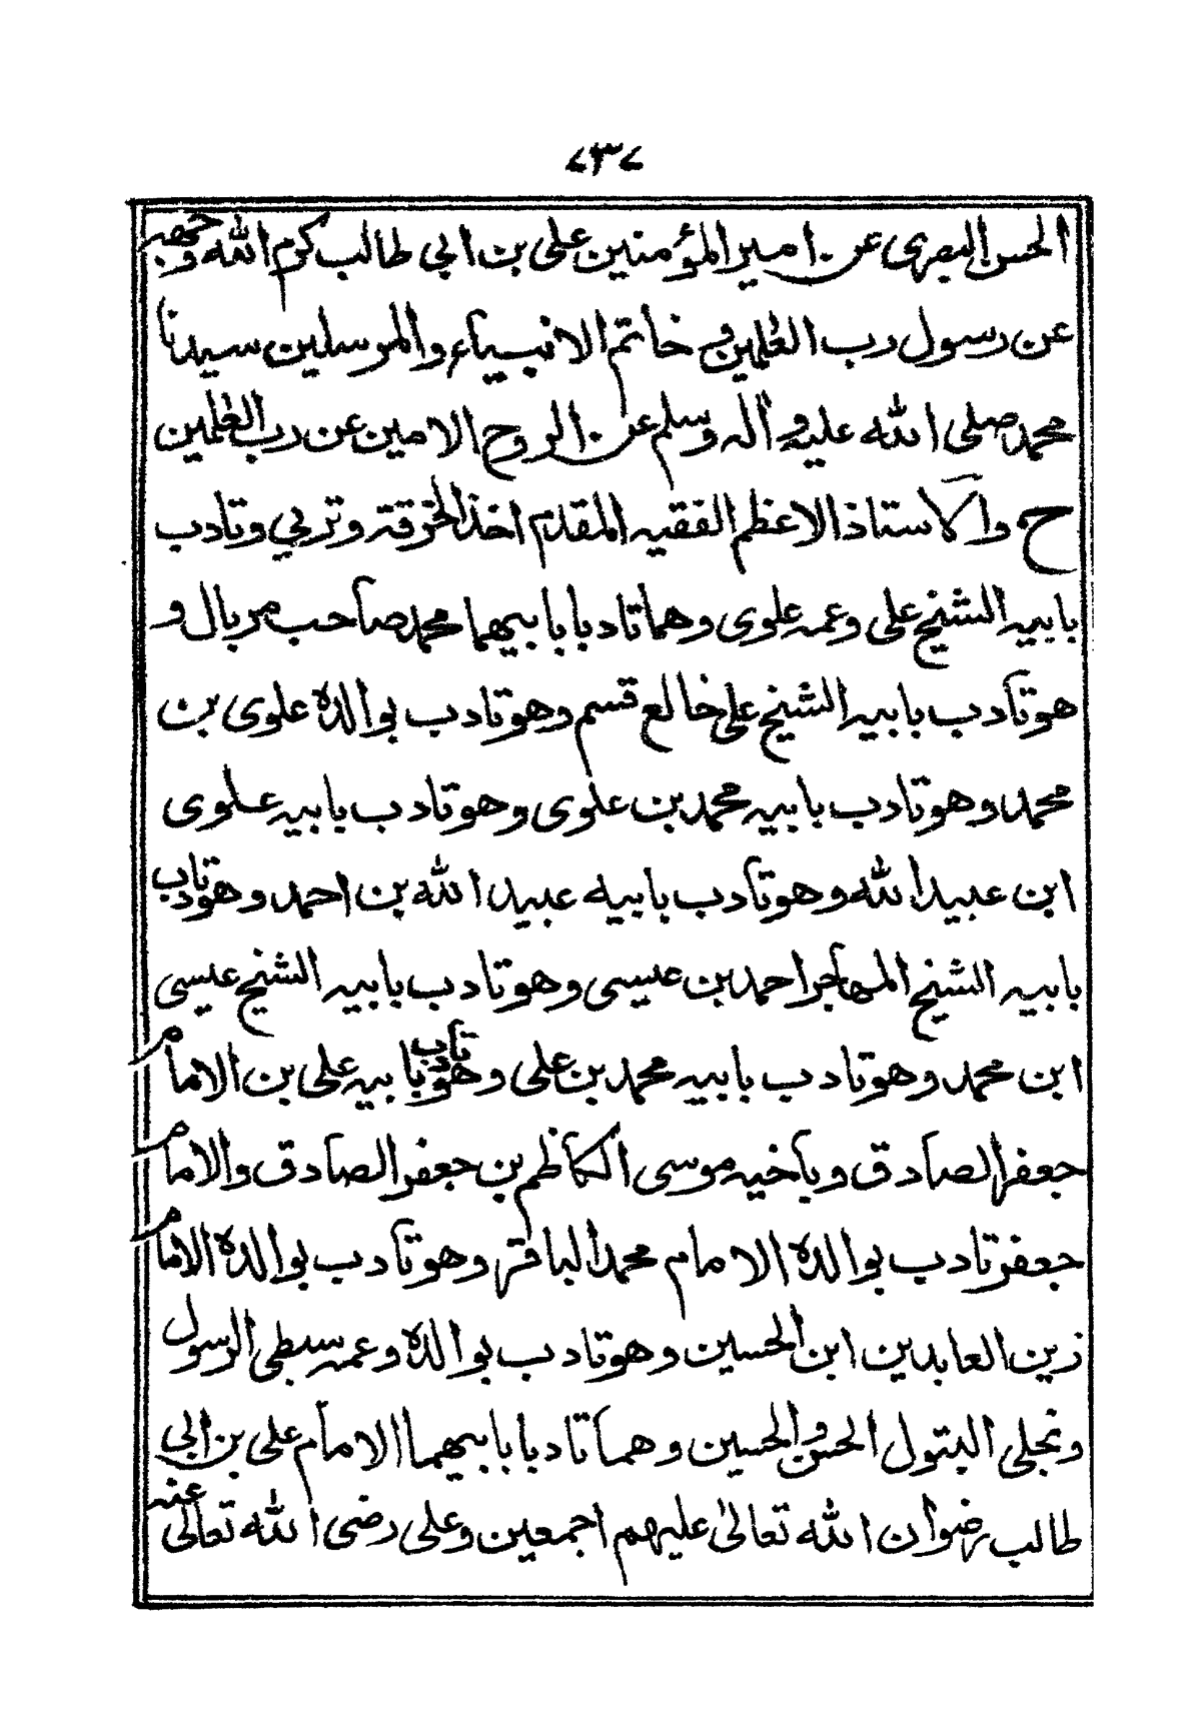 ٧٣٧
الحسن البصرى عن امير المؤمنين على بن ابى طالب كرم الله وجهه
عن رسول رب العٰلمين وخاتم الانبياء والمرسلين سيدنا
محمد صلى الله عليه واٰله وسلم عن الروح الامين عن رب العٰلمين
ح والاستاذ الاعظم الفقيه المقدم اخذ الخرقة وتربي وتادب
بابيه الشيخ على وعمه علوى وهما تادبا بابيهما محمد صاحب مربال و
هو تادب بابيه الشيخ على خالع قسم وهو تادب بوالده علوى بن
محمد وهو تادب بابيه محمد بن علوى وهو تادب بابيه علوى
ابن عبيد الله وهو تادب بابيه عبيد الله بن احمد وهو تادب
بابيه الشيخ المهاجر احمد بن عيسى وهو تادب بابيه الشيخ عيسى
ابن محمد وهو تادب بابيه محمد بن على وهو تادب بابيه على بن الامام
جعفر الصادق وباخيه موسى الكاظم بن جعفر الصادق والامام
جعفر تادب بوالده الامام محمد الباقر وهو تادب بوالده الامام
زين العابدين ابن الحسين وهو تادب بوالده وعمه سبطى الرسول
ونجلى البتول الحسن والحسين وهما تادبا بابيهما الامام على بن ابى
طالب رضوان الله تعالىٰ عليهم اجمعين وعلى رضى الله تعالىٰ عنه